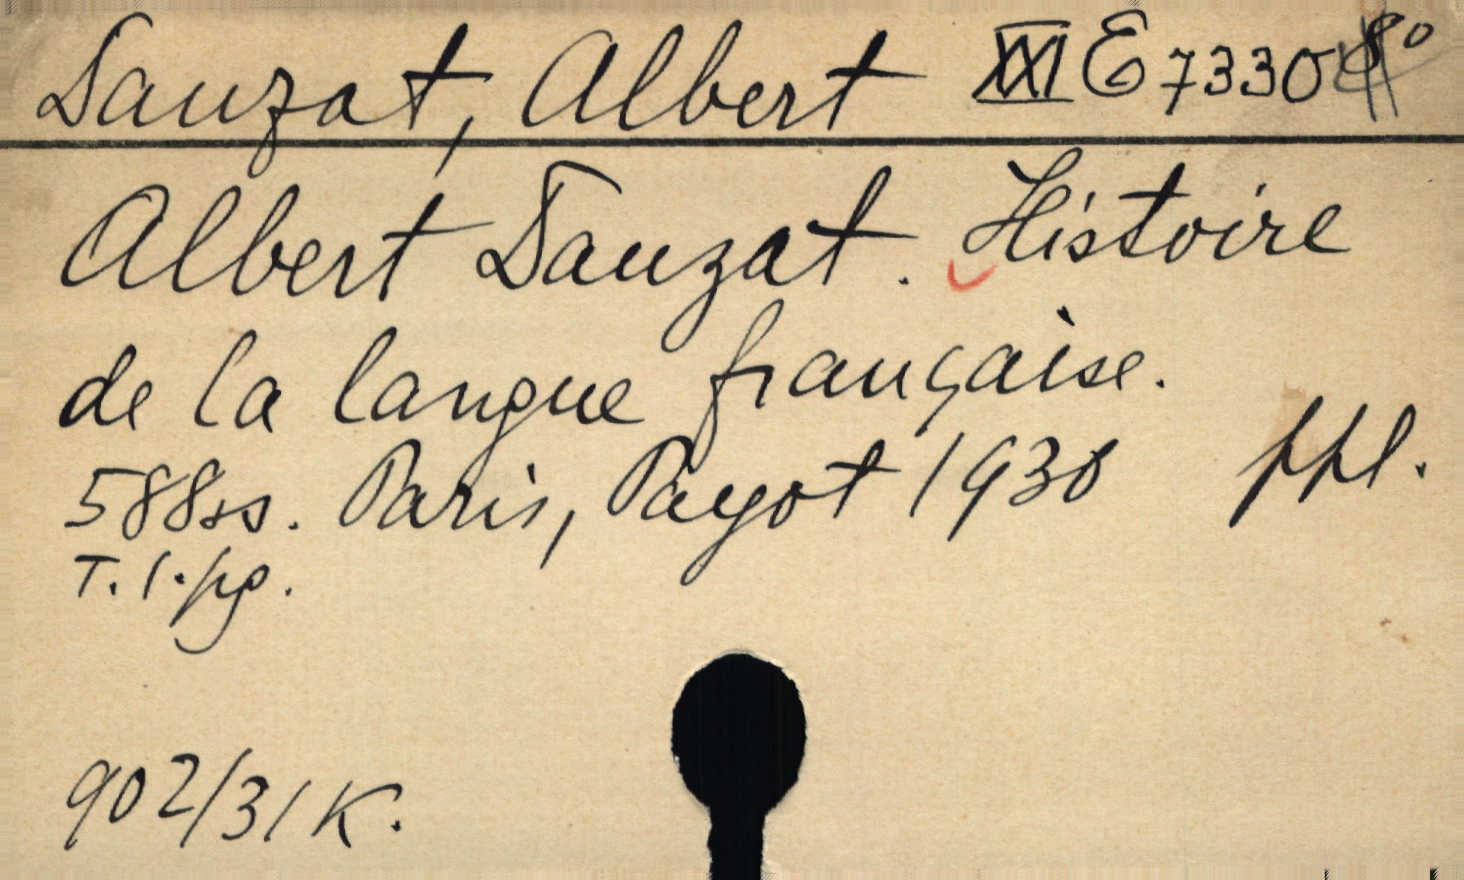 Dauzat, Albert XXI E 7330 8°
Albert Dauzat. Histoire
de la langue française.
588ss. Paris, Payot 1930 ppl.
T. l. pg.
902/31 K.